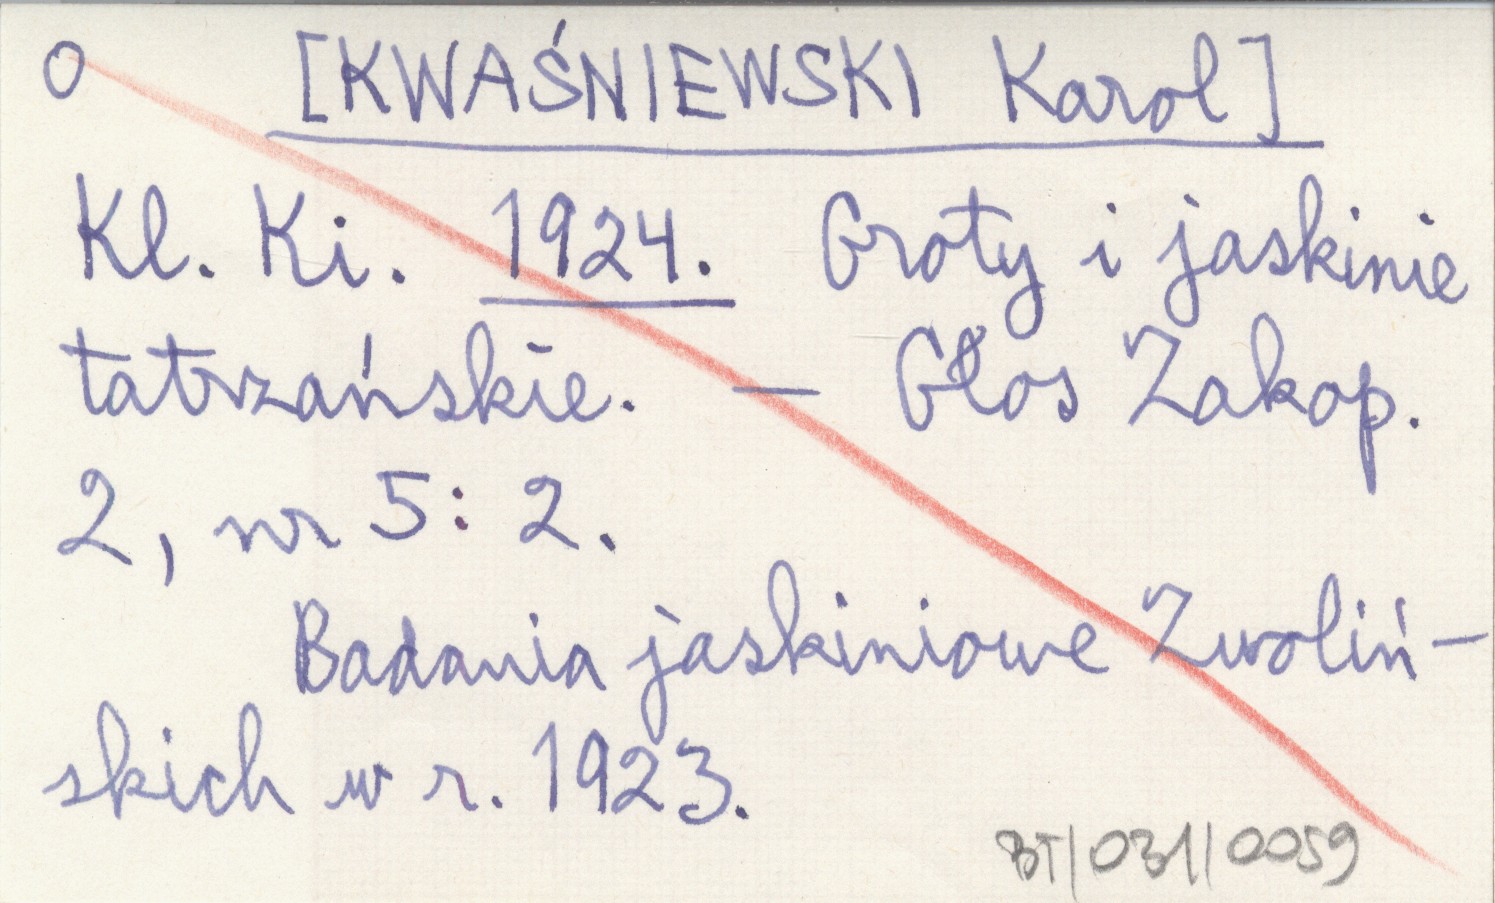 O [KWAŚNIEWSKI Karol]
Kl. Ki. 1924. Groty i jaskinie
tatrzańskie. — Głos Zakop.
2, nr 5: 2.
Badania jaskiniowe Zwoliń-
skich w r. 1923.
BT/031/0059